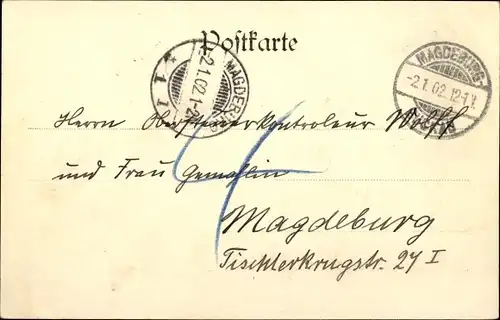 Postkarte
MAGDEBURG
-2.1.02.1-2
MAGDEBURG
-2.1.02.12-1
Herrn Obersteuerkontroleur Wolff
und Frau Gemahlin
Magdeburg
Tischlerkrugstr. 27 I